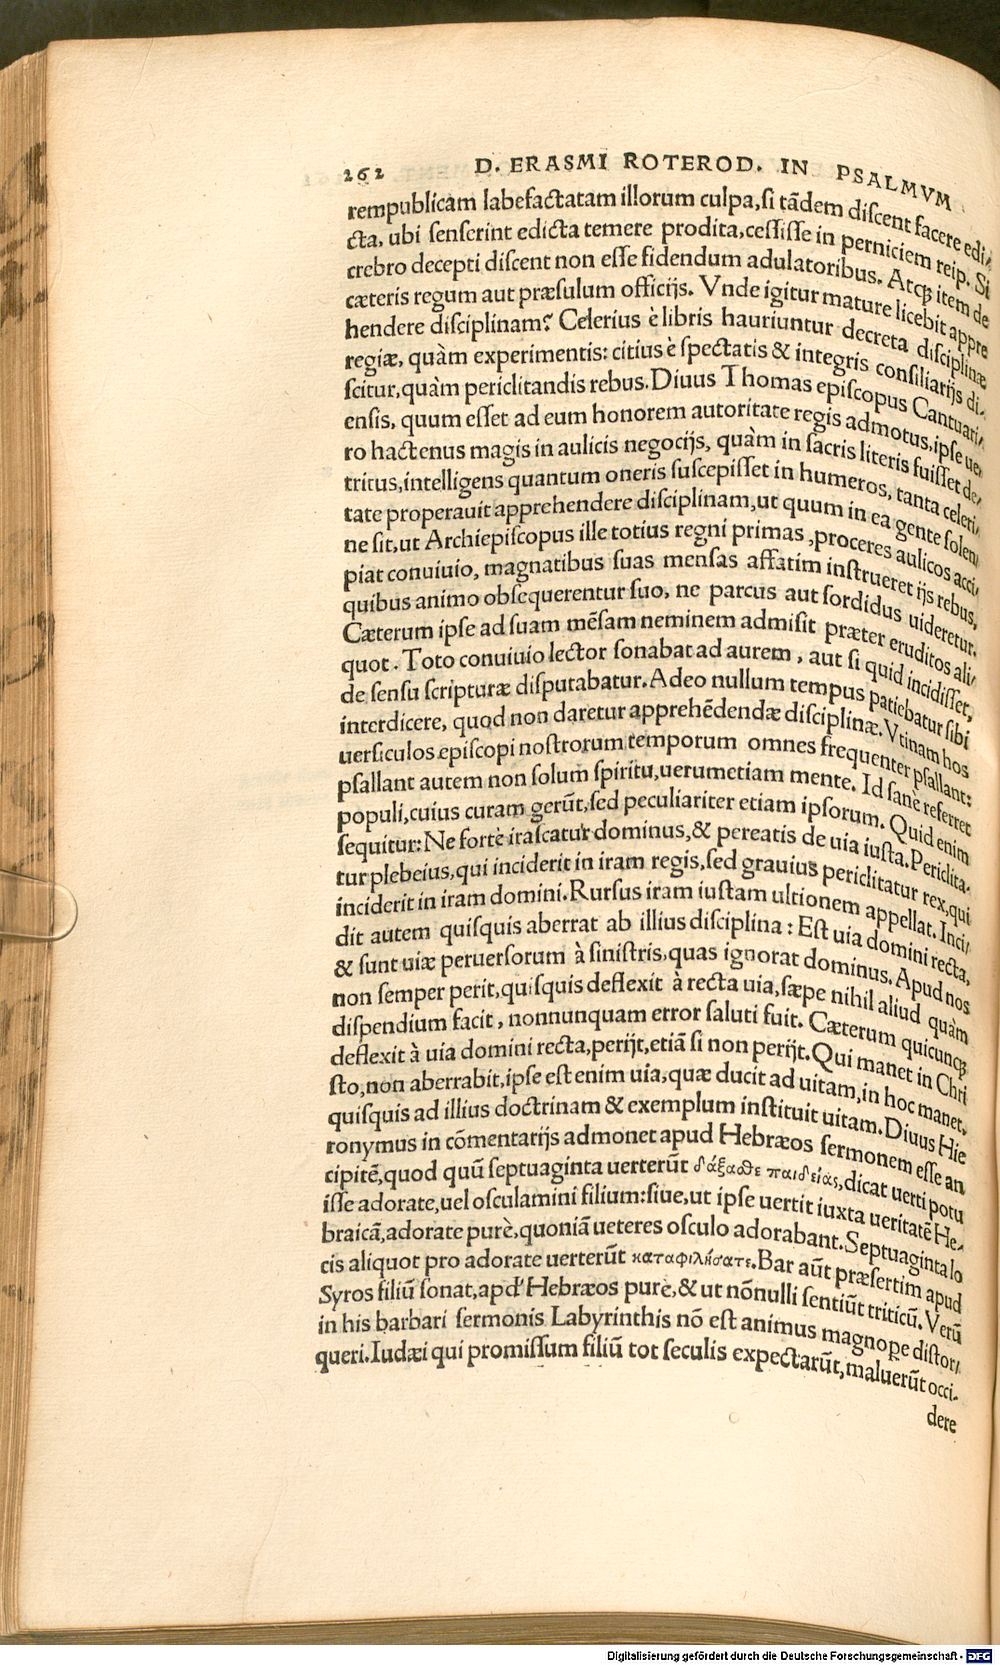 262 D. ERASMI ROTEROD. IN PSALMVM
rempublicam labefactatam illorum culpa, si tãdem discent facere edi/
cta, ubi senserint edicta temere prodita, cessisse in perniciem reip. Si
crebro decepti discent non esse fidendum adulatoribus. Atq́ item de
cæteris regum aut præsulum officijs. Vnde igitur mature licebit appre
hendere disciplinam? Celerius è libris hauriuntur decreta disciplinæ
regiæ, quàm experimentis: citius è spectatis & integris consiliarijs di/
scitur, quàm periclitandis rebus. Diuus Thomas episcopus Cantuari/
ensis, quum esset ad eum honorem autoritate regis admotus, ipse ue/
ro hactenus magis in aulicis negocijs, quàm in sacris literis fuisset de/
tritus, intelligens quantum oneris suscepisset in humeros, tanta celeri/
tate properauit apprehendere disciplinam, ut quum in ea gente solen/
ne sit, ut Archiepiscopus ille totius regni primas, proceres aulicos acci/
piat conuiuio, magnatibus suas mensas affatim instrueret ijs rebus,
quibus animo obsequerentur suo, ne parcus aut sordidus uideretur.
Cæterum ipse ad suam mẽsam neminem admisit præter eruditos ali/
quot. Toto conuiuio lector sonabat ad aurem, aut si quid incidisset,
de sensu scripturæ disputabatur. Adeo nullum tempus patiebatur sibi
interdicere, quod non daretur apprehẽdendæ disciplinæ. Vtinam hos
uersiculos episcopi nostrorum temporum omnes frequenter psallant:
psallant autem non solum spiritu, uerumetiam mente. Id sanè referret
populi, cuius curam gerũt, sed peculiariter etiam ipsorum. Quid enim
sequitur: Ne fortè irascatur dominus, & pereatis de uia iusta. Periclita-
tur plebeius, qui inciderit in iram regis, sed grauius periclitatur rex, qui
inciderit in iram domini. Rursus iram iustam ultionem appellat. Inci/
dit autem quisquis aberrat ab illius disciplina: Est uia domini recta,
& sunt uiæ peruersorum à sinistris, quas ignorat dominus. Apud nos
non semper perit, quisquis deflexit à recta uia, sæpe nihil aliud quàm
dispendium facit, nonnunquam error saluti fuit. Cæterum quicunq́
deflexit à uia domini recta, perijt, etiã si non perijt. Qui manet in Chri
sto, non aberrabit, ipse est enim uia, quæ ducit ad uitam, in hoc manet,
quisquis ad illius doctrinam & exemplum instituit uitam. Diuus Hie
ronymus in cõmentarijs admonet apud Hebræos sermonem esse an
cipitẽ, quod quũ septuaginta uerterũt δράξασθε παιδείας, dicat uerti potu
isse adorate, uel osculamini filium: siue, ut ipse uertit iuxta ueritatẽ He-
braicã, adorate purè, quoniã ueteres osculo adorabant. Septuaginta lo
cis aliquot pro adorate uerterũt καταφιλήσατε. Bar aũt præsertim apud
Syros filiũ sonat, apd' Hebræos pure, & ut nõnulli sentiũt triticũ. Verũ
in his barbari sermonis Labyrinthis nõ est animus magnope distor/
queri. Iudæi qui promissum filiũ tot seculis expectarũt, maluerũt occi-
dere
Digitalisierung gefördert durch die Deutsche Forschungsgemeinschaft - DFG